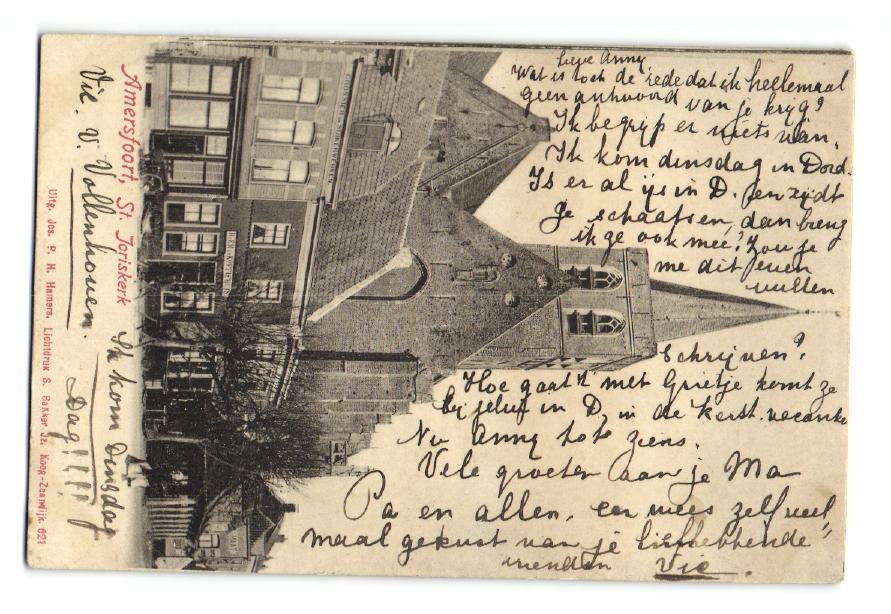 Lieve Anny
Wat is toch de rede dat ik heelemaal
geen antwoord van je kryg?
Ik begryp er niets van.
Ik kom dinsdag in Dord.
Is er al ijs in D. en rijdt
Je schaatsen, dan breng
ik ze ook mee? Zou je
me dit even
willen
Schrijven?
Hoe gaat 't met Grietje komt ze
bij jelui in D. in de Kerst.vacantie
Nu Anny tot ziens.
Vele groeten aan je Ma
Pa en allen. een wees zelf veel
maal gekust van je liefhebbende
vrienden Vic.
Amersfoort, St. Joriskerk
Vic. v. Vollenhoven.
Ik kom Dinsdag
Dag!!!!!
Uitg. Jos. P. H. Hamers. Lichtdruk S. Bakker Jz. Koog-Zaandijk. 621